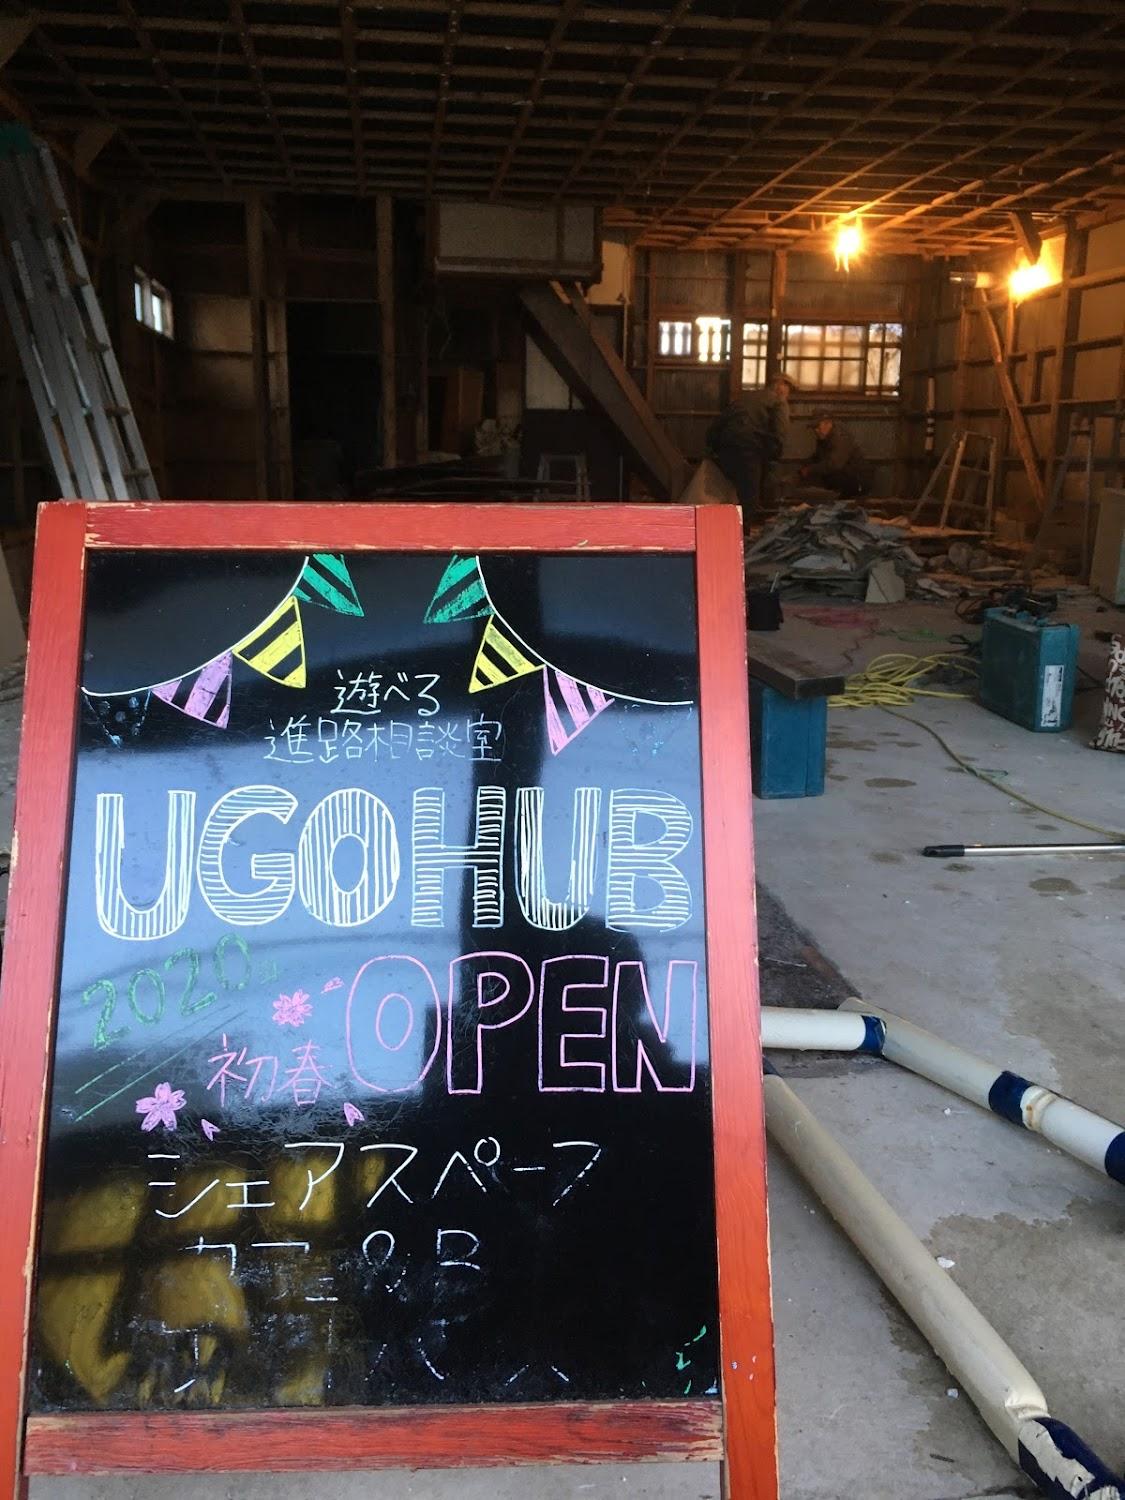 遊べる
進路相談室
UGOHUB
2020年
初春 OPEN
シェアスペース
カフェ&B